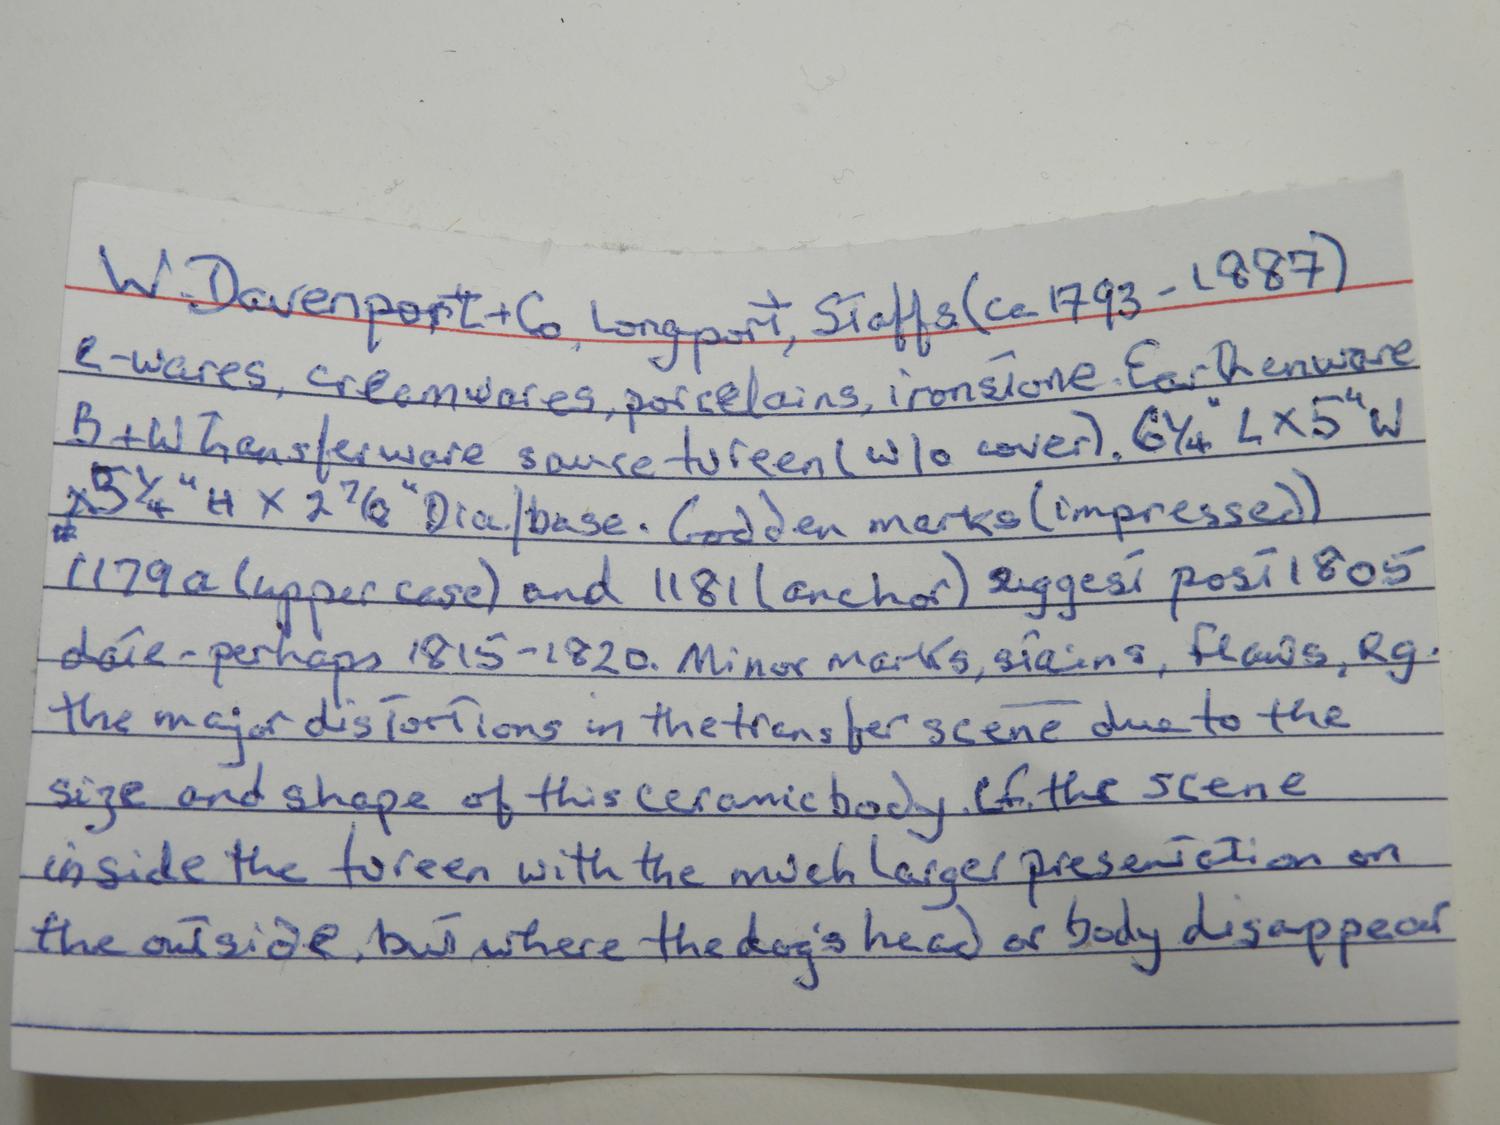 W. Davenport + Co, Longport, Staffs (ca 1793 - 1887)
e-wares, creamwares, porcelains, ironstone. Earthenware
B + W transferware sauce tureen (w/o cover). 6 1/4" L X 5" W
x 5 1/4" H X 2 7/8" Dia/base. Godden marks (impressed)
# 1179a (upper case) and 1181 (anchor) suggest post 1805
date - perhaps 1815-1820. Minor marks, stains, flaws, Eg.
the major distortions in the transfer scene due to the
size and shape of this ceramic body. Cf. the scene
inside the tureen with the much larger presentation on
the outside, but where the dog's head or body disappear